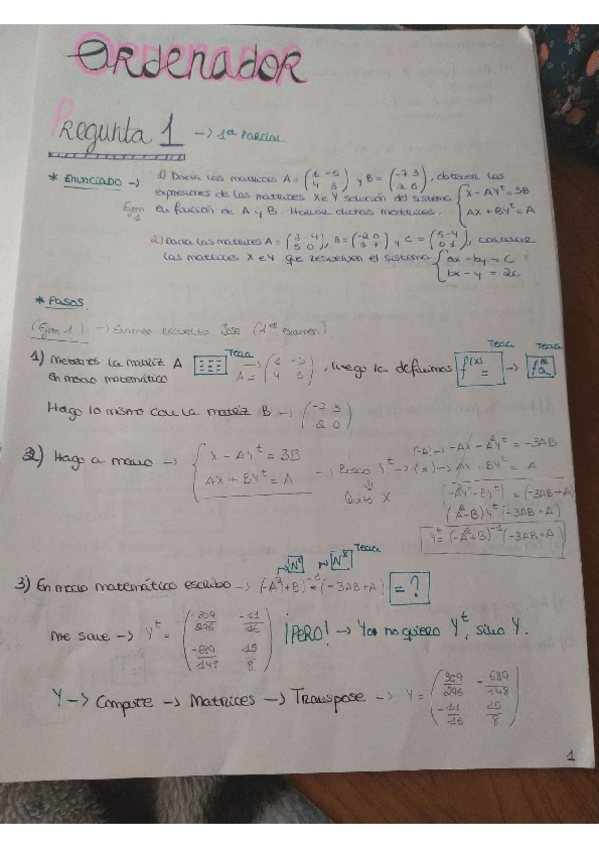 Ordenador
Pregunta 1 → 1er Parcial
* Enunciado → 1) Dadas las matrices A = (1 -5 / 4 3) y B = (-7 3 / 2 0), obtener las
expresiones de las matrices X e Y solución del sistema { x - AYᵗ = 3B
Ejem 1 en función de A y B. Hallar dichas matrices. AX + BYᵗ = A
2) Dadas las matrices A = (3 -4 / 5 0), B = (-2 0 / 3 7) y C = (5 -4 / 0 1), calcular
las matrices X e Y que resuelven el sistema { ax - by = C
bx - y = 2C
* Pasos
(Ejem 1) → Examen Resuelto Jose (1er examen)
1) Metemos la matriz A Tecla → A = , luego la definimos f(x) = Tecla →  Tecla
en modo matemático
Hago lo mismo con la matriz B → (-7 3 / 2 0)
2) Hago a mano → { x - AYᵗ = 3B → Busco Yᵗ → (-A) → -AX - A²Yᵗ = -3AB
AX + BYᵗ = A Quito X (=) → AX - BYᵗ = A
(-A²Yᵗ - BYᵗ) = (-3AB + A)
(A² - B)Yᵗ (-3AB + A)
Yᵗ = (-A² + B)⁻¹ (-3AB + A)
Tecla
3) En modo matemático escribo → (-A²) + B)⁻¹ = (-3AB + A) = ?
me sale → Yᵗ = (-309/296 -11/16 / -689/148 15/8) ¡PERO! → Yo no quiero Yᵗ, sino Y.
Y → Compute → Matrices → Transpose → Y = (309/296 -689/148 / -11/16 15/8)
1